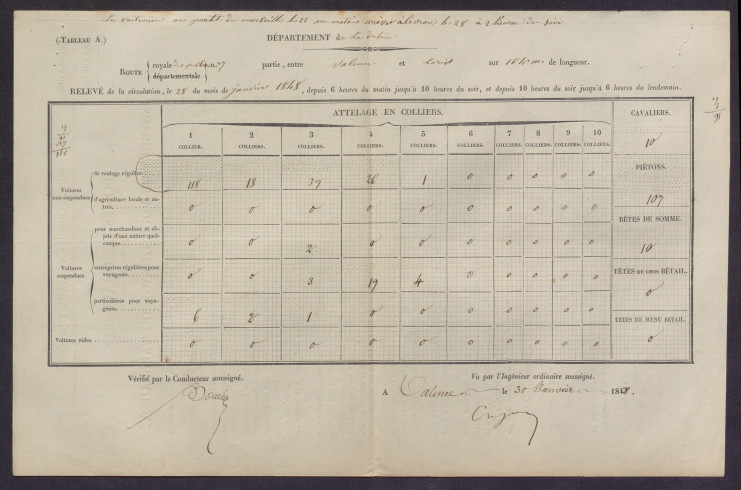 (TABLEAU A.)
DÉPARTEMENT de La drôme
ROUTE royale n. 7 départementale partie, entre valence et loriol sur de longueur.
RELEVÉ de la circulation, le 28 du mois de janvier 1848, depuis 6 heures du matin jusqu'à 10 heures du soir, et depuis 10 heures du soir jusqu'à 6 heures du lendemain.
ATTELAGE EN COLLIERS.
CAVALIERS.
1 COLLIER. 2 COLLIERS. 3 COLLIERS. 4 COLLIERS. 5 COLLIERS. 6 COLLIERS. 7 COLLIERS. 8 COLLIERS. 9 COLLIERS. 10 COLLIERS.
10
PIÉTONS.
Voitures non suspendues
de roulage régulier. 118 18 39 26 1 0 0 0 0 0
d'agriculture locale et autres. 0 0 0 0 0 0 0 0 0 0
107
BÊTES DE SOMME.
Voitures suspendues
pour marchandises et objets d'une nature quelconque 0 0 2 0 0 0 0 0 0 0
10
entreprises régulières pour voyageurs. 0 0 3 19 4 0 0 0 0 0
TÊTES DE GROS BÉTAIL.
0
particulières pour voyageurs. 6 2 1 0 0 0 0 0 0 0
TÊTES DE MENU BÉTAIL.
Voitures vides 0 0 0 0 0 0 0 0 0 0
0
Vérifié par le Conducteur soussigné.
Vu par l'Ingénieur ordinaire soussigné.
A Valence le 30 Janvier 1848.